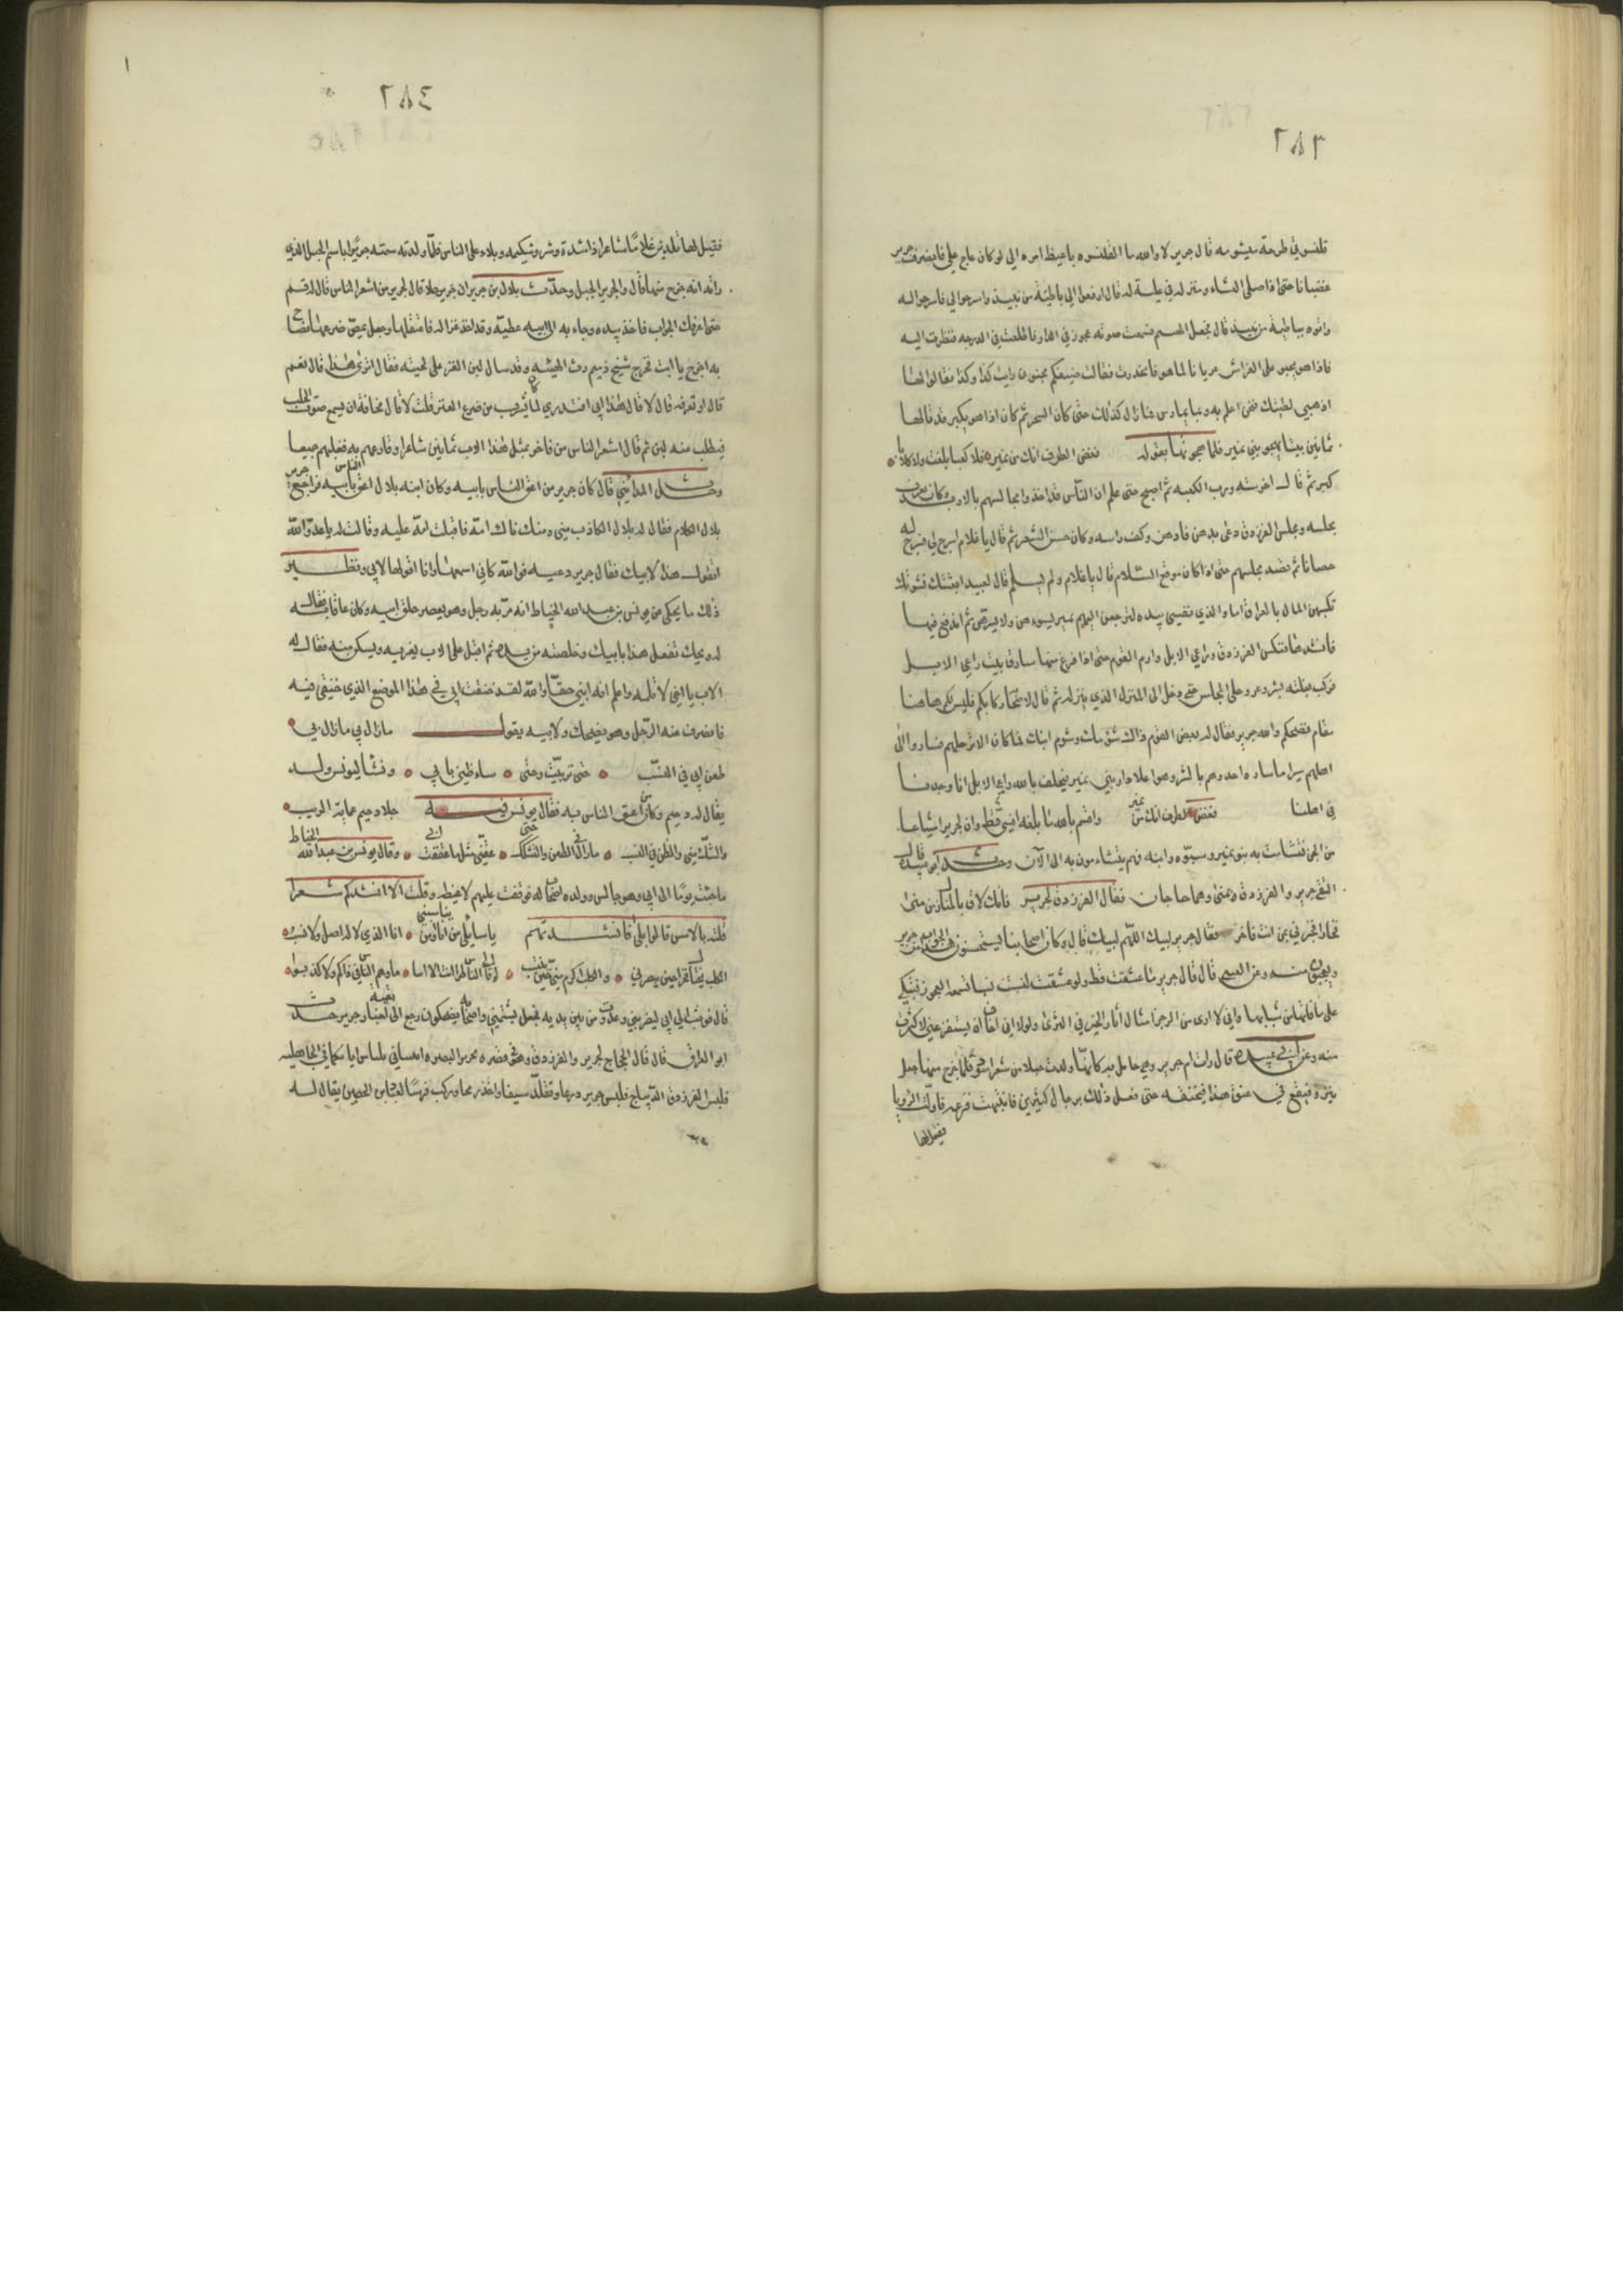 ٢٨٣
قلنسوتي طرحة مشومه قال جرير لا والله ما القلنسوه باغيظ امره الي لو كان عاج علي فانصرف جرير
غضبانا حتى اذا صلى العشاء ومنزله في علية له قال ارفعوا الي باطية من نبيذ واسرجوا لي فاسرجوا له
واتوه بباطية من نبيذ قال فجعل يهمهم فسمعت صوته عجوز في الدار فاطلعت في الدرجه فنظرت اليه
فاذا هو يحبو على الفراش عريانا لما هو فيه فانحدرت فقالت ضيفكم مجنون رايت كذا وكذا فقالوا لها
اذهبي لطيتك نحن اعلم به وبما يمارس فما زال كذلك حتى كان السحر ثم كان اذا هو يكبر قد قالها
ثمانين بيتا يهجو بني نمير فلما ختمها بقوله فغض الطرف انك من نمير فلا كعبا بلغت ولا كلابا
كبر ثم قال اخزيته ورب الكعبه ثم اصبح حتى علم ان الناس قد اخذوا مجالسهم بالمربد وكان يعرف
مجلسه ومجلس الفرزدق دعى بدهن فادهن وكف راسه وكان حسن الشعر ثم قال يا غلام اسرج لي فسرج له
حصانا ثم قصد مجلسهم حتى اذا كان موقع السلام قال يا غلام ولم يسلم قال لعبيد ابعثتك نسوتك
تكسبهن المال بالعراق اما والذي نفسي بيده لترجعن اليهم بمير يسوءهن ولا يسرهن ثم اندفع فيها
فانشدها فنكس الفرزدق وراعي الابل وارم القوم حتى اذا فرغ منها سار وثبت راعي الابل
فركب بغلته بشر وعر وخلى المجلس حتى دخل الى المنزل الذي ينزله ثم قال لاصحابه ركابكم فليس لكم هاهنا
مقام فضحكم والله جرير فقال له بعض القوم ذاك شؤمك وشوم ابنك فما كان الا ترحلهم فساروا الى
اهلهم سيرا ما ساره احد وهم بالشريف وهو اعلا دار بني نمير فيحلف بالله راعي الابل انا وجدنا
في اهلنا فغض الطرف انك من نمير واقسم بالله ما بلغه انسي قط وان لجرير اشياعا
من الجن فتشاءمت به بنو نمير وسبوه وابنه فهم يتشاءمون به الى الآن وحدث ابو عبيدة قال
التقى جرير والفرزدق بمنى وهما حاجان فقال الفرزدق لجرير فانك لاق بالمنازل من منى
فخارا فخبرني بمن انت فاخر فقال جرير لبيك اللهم لبيك قال وكان اصحابنا يستحسنون هذا الجواب من جرير
ويعجبون منه وعن العتبي قال قال جرير ما عشقت قط ولو عشقت لنسبت نسيبا تسمعه العجوز فتبكي
على ما فاتها من شبابها واني لاروى من الرجز امثال آثار الخيل في الثرى ولولا اني اخاف ان يستفرغني لاكثرت
منه وعن ابي عبيدة قال رات ام جرير وهي حامل به كانها ولدت حبلا من شعر اسود فلما خرج منها جعل
ينزو فيقع في عنق هذا فيخنقه حتى فعل ذلك برجال كثيرين فانتبهت فزعه فاولت الرؤيا
فقيل لها
٢٨٤
فقيل لها تلدين غلاما شاعرا ذا شدة وشر وشكيمه وبلاء على الناس فلما ولدته سمته جريرا باسم الحبل الذي
راته انه خرج منها قال والجرير الحبل وحدث بلال بن جرير ان جريرا رجلا قال لجرير من اشعر الناس قال له قم
حتى اعرفك الجواب فاخذ بيده وجاء به الى ابيه عطية وقد اخذ عنزا له فاعتقلها وجعل يمص ضرعها فصاح
به اخرج يا ابت فخرج شيخ ذميم رث الهيئه وقد سال لبن العنز على لحيته فقال اترى هذا قال نعم
قال او تعرفه قال لا قال هذا ابي افتدري لم كان يشرب من ضرع العنز قلت لا قال مخافة ان يسمع صوت الحلب
فيطلب منه لبن ثم قال اشعر الناس من فاخر بمثل هذا الاب ثمانين شاعرا وقارعهم به فغلبهم جميعا
وحدث المدائني قال كان جرير من اعق الناس بابيه وكان ابنه بلال اعق الناس بابيه فراجع جرير
بلال الكلام فقال له بلال الكاذب مني ومنك ناك امه فاقبلت امه عليه وقالت له يا عدو الله
اتقول هذا لابيك فقال جرير دعيه فوالله كاني اسمعها وانا اقولها لابي ونظير
ذلك ما يحكى من يونس بن عبد الله الخياط انه مر به رجل وهو يعصر حلق ابيه وكان عاقا به فقال
له ويحك تفعل هذا بابيك وخلصه من يده ثم اقبل على الاب يعزيه ويسكن منه فقال له
الاب يا اخي لا تلمه واعلم انه ابني حقا والله لقد خنقت ابي في هذا الموضع الذي خنقني فيه
فانصرف عنه الرجل وهو يضحك ولابيه يقول ما زال بي ما زال بي
طعن ابي في النسب حتى تريبت وحتى ساء ظني بابي ونشا ليونس ولد
يقال له دحيم وكان من اعق الناس به فقال يونس فيه جلا دحيم عماية الريب
والشك مني والظن في النسب ما زال في الظن والتشكك حتى عقني مثل ما عققت ابي وقال يونس بن عبد الله الخياط
ما جئت يوما الى ابي وهو جالس وولده اصحاب له فوقفت عليهم لاغيظه وقلت الا انشدكم شعرا
قلته بالامس قالوا بلى فانشدتهم يا سائلي من انا او من يناسبني انا الذي لا له اصل ولا نسب
قال فوثب الي ابي ليضربني وعدوت من بين يديه فجعل يشتمني واصحابه يضحكون رجع الى بقية اخبار جرير حدث
ابو العراف قال قال الحجاج لجرير والفرزدق وهو في قصره بحزيز البصره ائتياني بلباس ابائكما في الجاهليه
فلبس الفرزدق الديباج فلبس جرير درعا وتقلد سيفا واخذ رمحا وركب فرسا لعباد بن الحصين يقال له